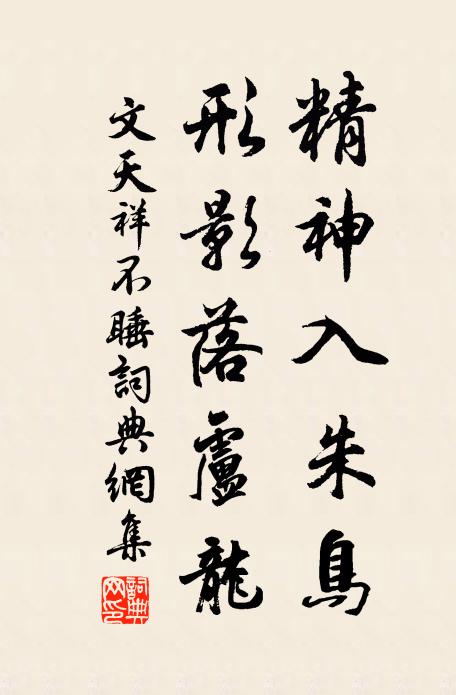 精神入朱鳥
形影落盧龍
文天祥不睡詞典網集
詞典网印